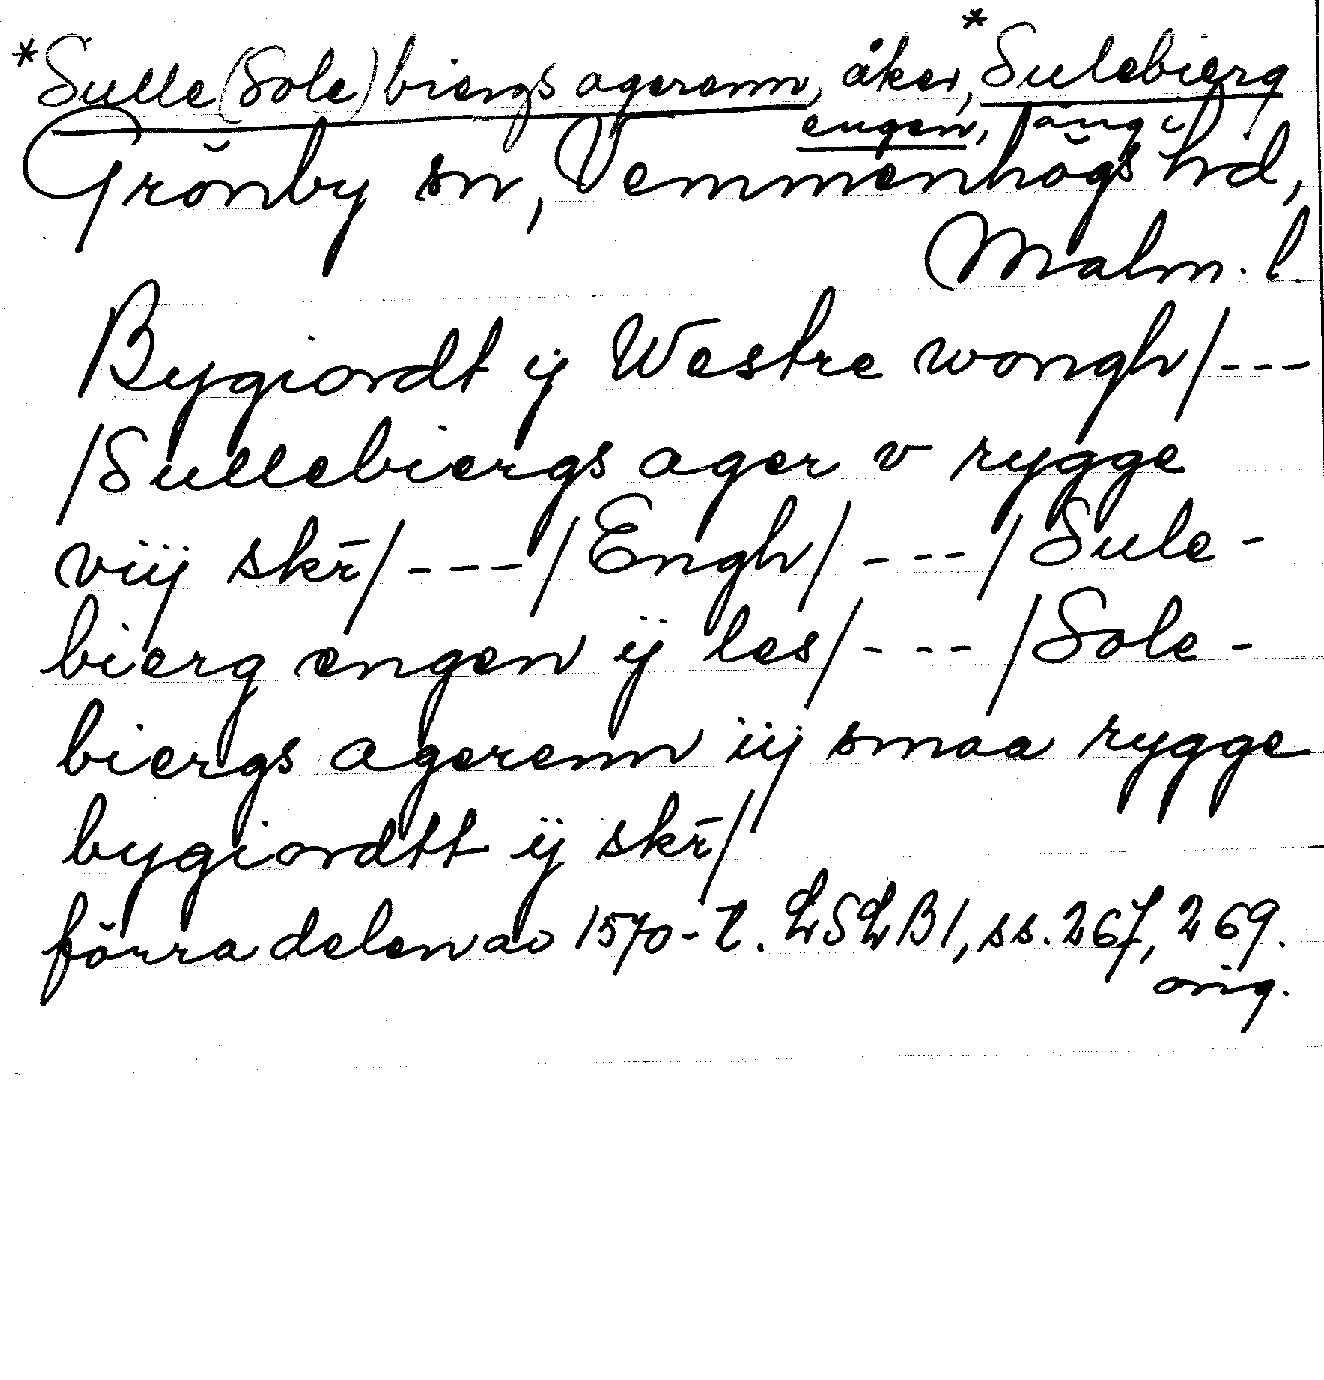 *Sulle(Sole)biergs agerenn, åker, *Sulebierg
engen, äng i
Grönby sn, Vemmenhögs hd,
Malm. l.
Bygiordt ij Westre wongh/---
/Sullebiergs ager v rygge
viij skr̄/---/Engh/---/Sule-
bierg engen ij les/---/Sole-
biergs agerenn iij smaa rygge
bygiordtt ij skr̄/
förra delen av 1570-t. LSLB1, ss. 267, 269.
orig.